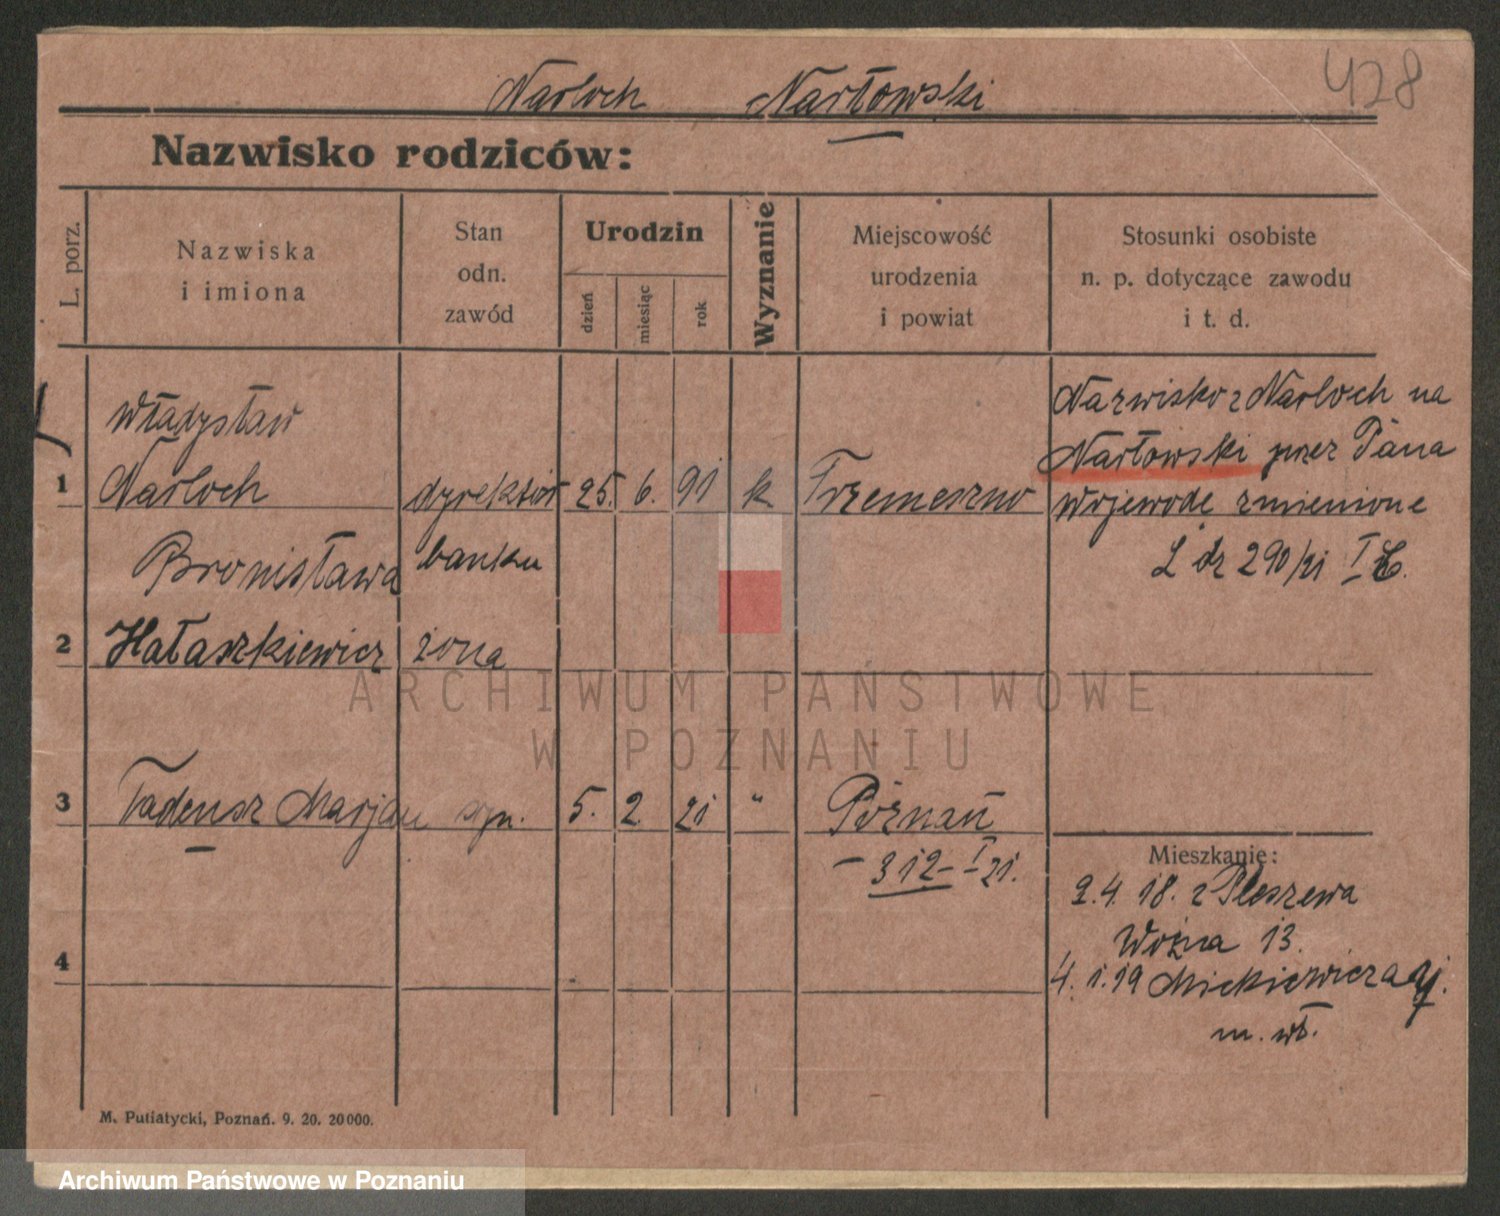 428
Narloch Narłowski
Nazwisko rodziców:
L. porz.
Nazwiska
i imiona
Stan
odn.
zawód
Urodzin
dzień
miesiąc
rok
Wyznanie
Miejscowość
urodzenia
i powiat
Stosunki osobiste
n. p. dotyczące zawodu
i t. d.
Władysław
1 Narloch dyrektor 25. 6. 91 k Trzemeszno
banku
Nazwisko z Narloch na
Narłowski przez Pana
Wojewodę zmienione
L dz 290/21 I
Bronisława
2 Hałaszkiewicz żona
3 Tadeusz Marjan syn. 5. 2. 21 " Poznań
– 312 – I 21.
4
Mieszkanie:
2.4. 18. z Pleszewa
Woźna 13.
4. 1. 19 Mickiewicza
m. wł.
M. Putiatycki, Poznań. 9. 20. 20000.
ARCHIWUM PAŃSTWOWE
W POZNANIU
Archiwum Państwowe w Poznaniu